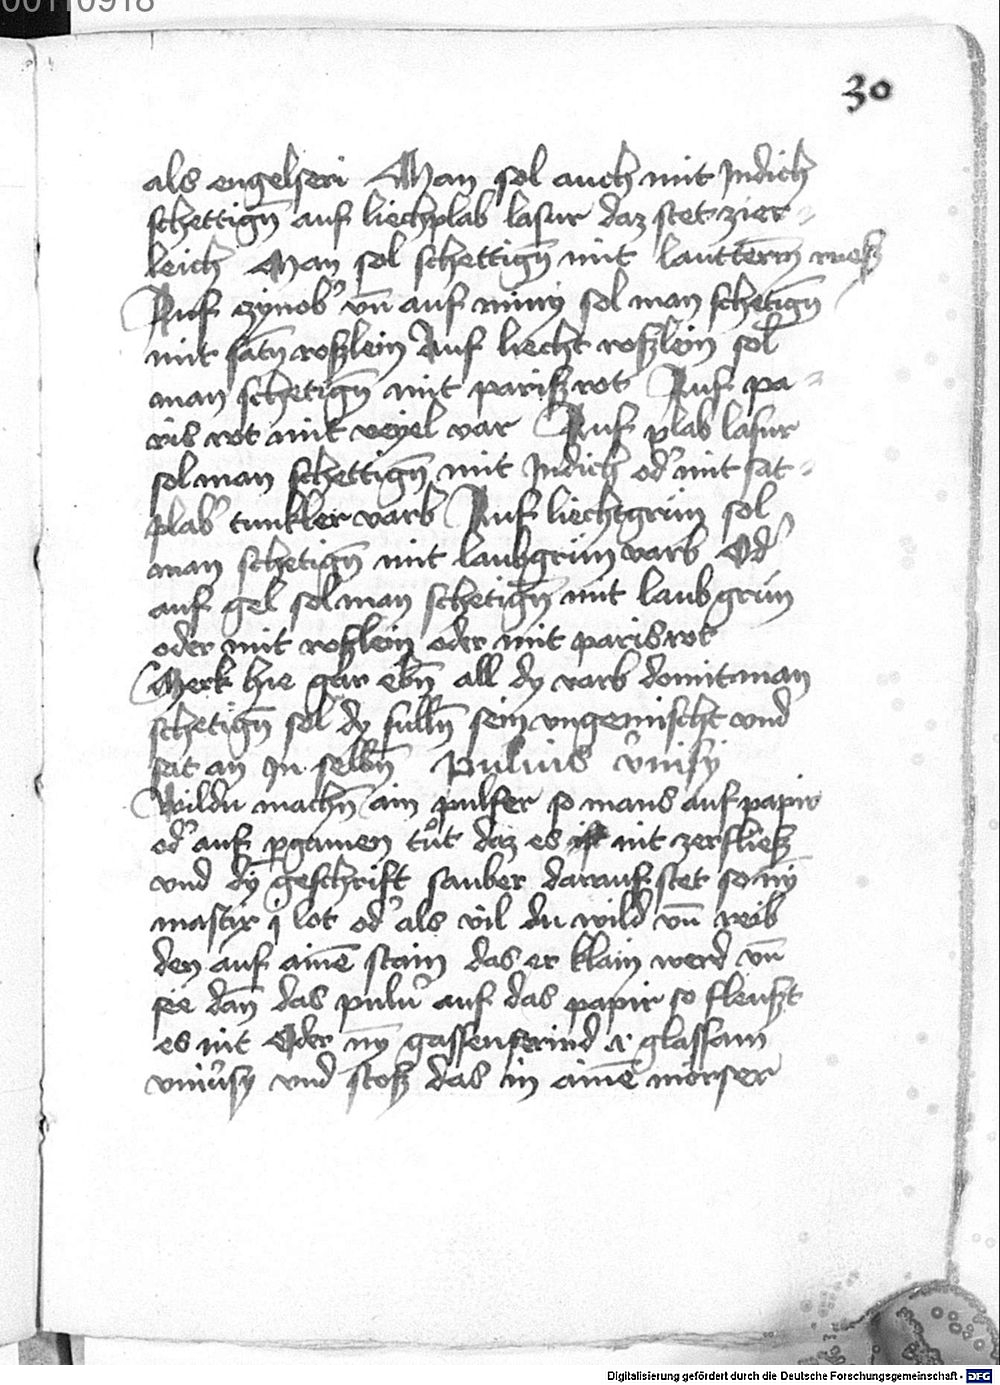 00110918
30
als engelseri Man sol auch mit Jndich
schettign̄ auf liechplab lasur daz stet zier=
leich Man sol schettign̄ mit lautterm̄ ruesß
Auf zynob' vn̄ auf miny sol man schetign̄
mit satn̄ roßlein Auf liecht roßlein sol
man schetign̄ mit pariß rot Auf pa=
ris rot mit veyel var Auf plab lasur
sol man schettign̄ mit Jndich od' mit sat=
plab' tunkler varb Auf liechtgrün sol
man schetign̄ mit laubgrün varb Od'
auf gel sol man schetign̄ mit laubgrün
oder mit roßlein oder mit parisrot
Merk hie gar ebn̄ all dy varb domit man
schetign̄ sol dy sulln̄ sein vngemischt vnd
sat an Jn selbn̄ Puluis v'nisy
Wildu machn̄ ain pulfer so mans auf papir
od' auf ꝑgamen tůt daz es nit zerfließ
vnd dy̅ geschrift sauber darauf stet so ny̅
mastix j lot od' als vil du wild vn̄ reib
den auf aine̅ stain das er klain werd vn̄
see dan̄ das pulu' auf das papir so fleußt
es nit Oder ny̅ glassam
vniu'sy vnd stoß das in aine̅ mörser
Digitalisierung gefördert durch die Deutsche Forschungsgemeinschaft - DFG